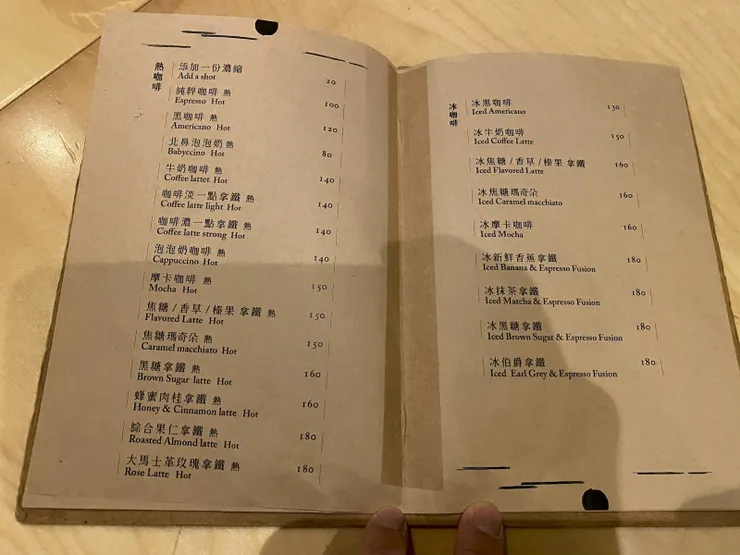 熱咖啡
添加一份濃縮
Add a shot 20
純粹咖啡 熱
Espresso Hot 100
黑咖啡 熱
Americano Hot 120
北鼻泡泡奶 熱
Babyccino Hot 80
牛奶咖啡 熱
Coffee lattet Hot 140
咖啡淡一點拿鐵 熱
Coffee latte light Hot 140
咖啡濃一點拿鐵 熱
Coffee latte strong Hot 140
泡泡奶咖啡 熱
Cappuccino Hot 140
摩卡咖啡 熱
Mocha Hot 150
焦糖/香草/榛果 拿鐵 熱
Flavored Latte Hot 150
焦糖瑪奇朵 熱
Caramel macchiato Hot 150
黑糖拿鐵 熱
Brown Sugar latte Hot 160
蜂蜜肉桂拿鐵 熱
Honey & Cinnamon latte Hot 160
綜合果仁拿鐵 熱
Roasted Almond latte Hot 180
大馬士革玫瑰拿鐵 熱
Rose Latte Hot 180
冰咖啡
冰黑咖啡
Iced Americano 130
冰牛奶咖啡
Iced Coffee Latte 150
冰焦糖/香草/榛果 拿鐵
Iced Flavored Latte 160
冰焦糖瑪奇朵
Iced Caramel macchiato 160
冰摩卡咖啡
Iced Mocha 160
冰新鮮香蕉拿鐵
Iced Banana & Espresso Fusion 180
冰抹茶拿鐵
Iced Matcha & Espresso Fusion 180
冰黑糖拿鐵
Iced Brown Sugar & Espresso Fusion 180
冰伯爵拿鐵
Iced Earl Grey & Espresso Fusion 180